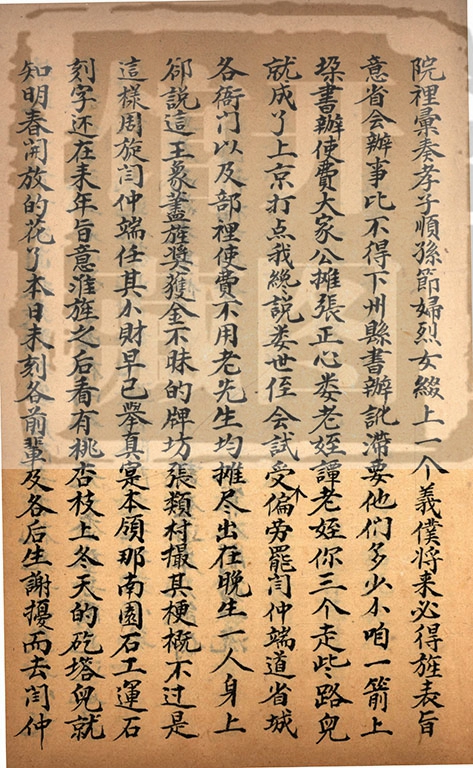 院裡彙奏孝子順孫節婦烈女綴上一个義僕将来必得旌表旨
意省会辦事比不得下州縣書辦訛滞要他们多少小咱一箭上
垜書辦使費大家公摊張正心娄老姪譚老姪你三个走些路兒
就成了上京打点我纔説娄世侄会試受个偏劳罷闫仲端道省城
各衙门以及部裡使費不用老先生均摊尽出在晚生一人身上
卻説這王象藎旌奬獲金不昧的牌坊張類村撮其梗概不过是
這様周旋闫仲端任其小財早已擧真寔本領那南園石工運石
刻字还在来年旨意淮旌之后看有桃杏枝上冬天的矻塔兒就
知明春開放的花了本日未刻各前輩及各后生謝擾而去闫仲